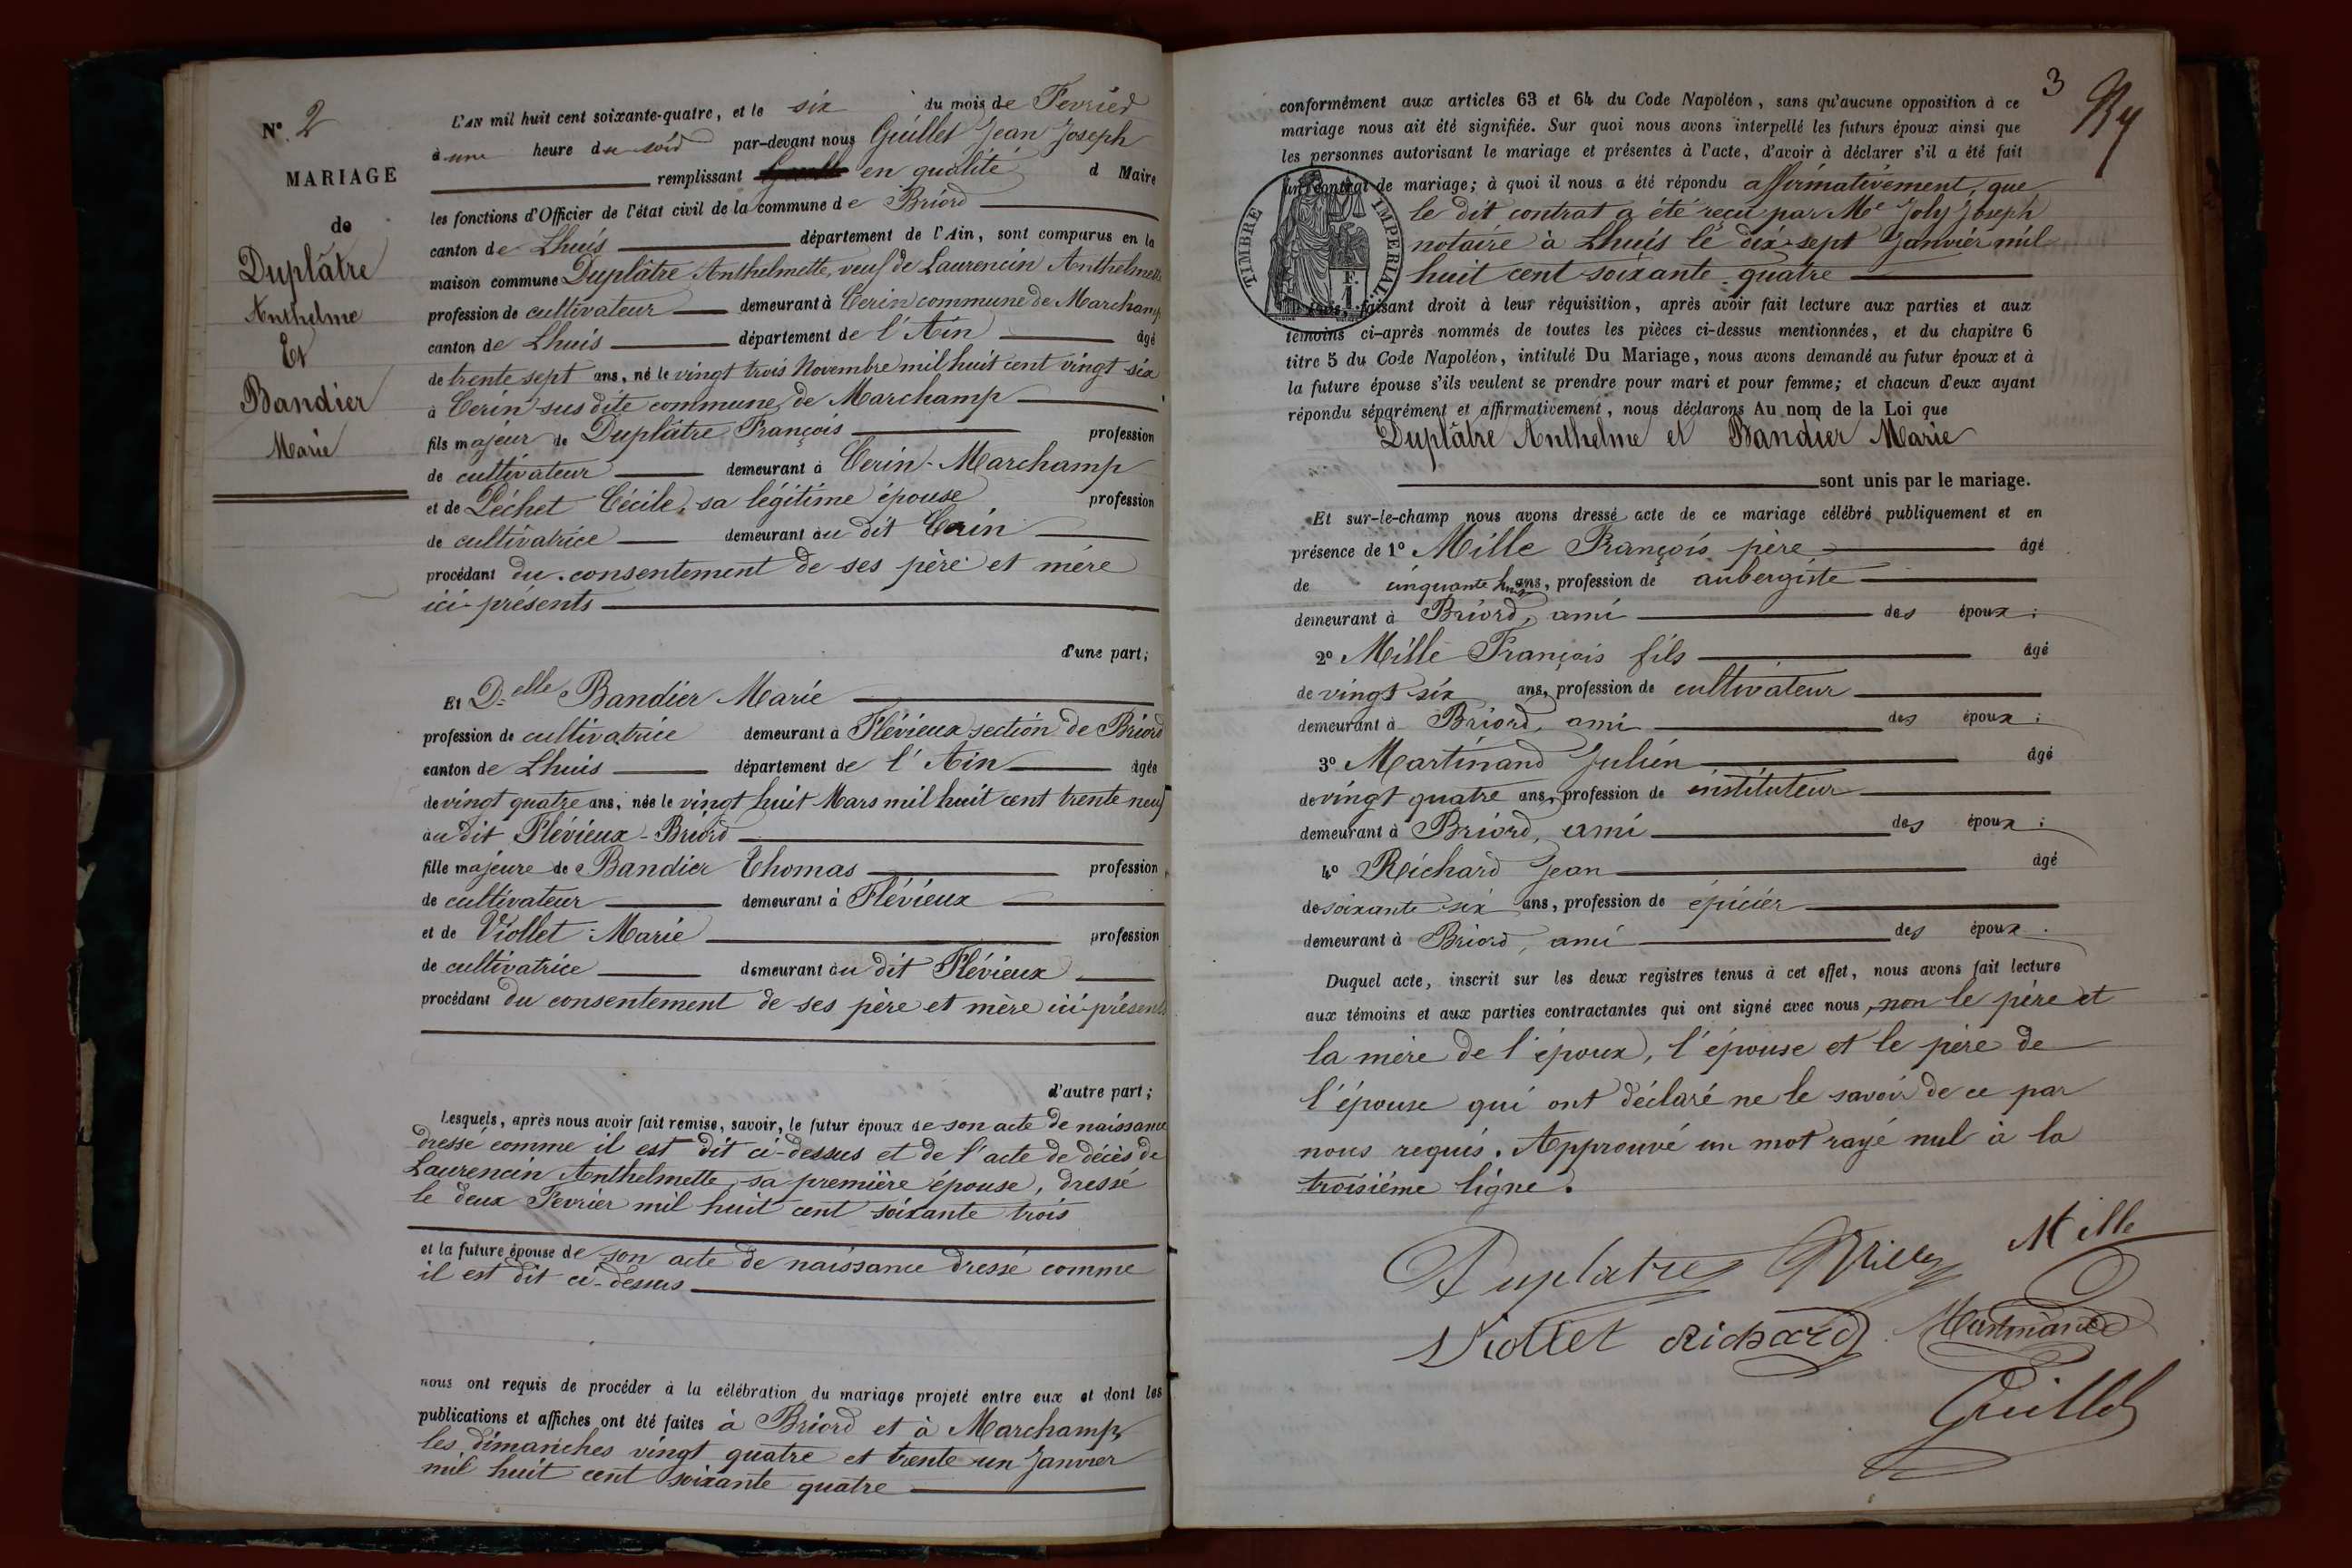 N° 2
MARIAGE
de
Duplâtre
Anthelme
Et
Bandier
Marie
L'AN mil huit cent soixante-quatre, et le six du mois de Fevrier
à une heure du soir par-devant nous Guillet Jean Joseph
remplissant en qualité d Maire
les fonctions d'Officier de l'état civil de la commune de Briord
canton de Lhuis département de l'Ain, sont comparus en la
maison commune Duplâtre Anthelmette, veuf de Laurencin Anthelmette
profession de cultivateur demeurant à Cerin commune de Marchamp
canton de Lhuis département de l'Ain âgé
de trente sept ans, né le vingt trois Novembre mil huit cent vingt six
à Cerin susdite commune de Marchamp
fils majeur de Duplâtre François profession
de cultivateur demeurant à Cerin-Marchamp
et de Péchet Cécile, sa légitime épouse profession
de cultivatrice demeurant au dit Cerin
procédant du consentement de ses père et mère
ici présents
d'une part;
Et D.elle Bandier Marie
profession de cultivatrice demeurant à Flévieux section de Briord
canton de Lhuis département de l'Ain âgée
de vingt quatre ans, née le vingt huit Mars mil huit cent trente neuf
au dit Flévieux-Briord
fille majeure de Bandier Thomas profession
de cultivateur demeurant à Flévieux
et de Viollet Marie profession
de cultivatrice demeurant au dit Flévieux
procédant du consentement de ses père et mère ici présents
d'autre part;
Lesquels, après nous avoir fait remise, savoir, le futur époux de son acte de naissance
dressé comme il est dit ci-dessus et de l'acte de décès de
Laurencin Anthelmette, sa première épouse, dressé
le deux Fevrier mil huit cent soixante trois
et la future épouse de son acte de naissance dressé comme
il est dit ci-dessus
nous ont requis de procéder à la célébration du mariage projeté entre eux et dont les
publications et affiches ont été faites à Briord et à Marchamp,
les dimanches vingt quatre et trente un Janvier
mil huit cent soixante quatre
3
conformément aux articles 63 et 64 du Code Napoléon, sans qu'aucune opposition à ce
mariage nous ait été signifiée. Sur quoi nous avons interpellé les futurs époux ainsi que
les personnes autorisant le mariage et présentes à l'acte, d'avoir à déclarer s'il a été fait
un contrat de mariage; à quoi il nous a été répondu affirmativement, que
le dit contrat a été reçu par Me Joly Joseph
notaire à Lhuis le dix-sept Janvier mil
huit cent soixante quatre
TIMBRE IMPERIAL
F.
1
faisant droit à leur réquisition, après avoir fait lecture aux parties et aux
témoins ci-après nommés de toutes les pièces ci-dessus mentionnées, et du chapitre 6
titre 5 du Code Napoléon, intitulé Du Mariage, nous avons demandé au futur époux et à
la future épouse s'ils veulent se prendre pour mari et pour femme; et chacun d'eux ayant
répondu séparément et affirmativement, nous déclarons Au nom de la Loi que
Duplâtre Anthelme et Bandier Marie
sont unis par le mariage.
Et sur-le-champ nous avons dressé acte de ce mariage célébré publiquement et en
présence de 1° Mille François père âgé
de cinquante huit ans, profession de aubergiste
demeurant à Briord, ami des époux;
2° Mille François fils âgé
de vingt six ans, profession de cultivateur
demeurant à Briord, ami des époux;
3° Martinand Julien âgé
de vingt quatre ans, profession de instituteur
demeurant à Briord, ami des époux;
4° Richard Jean âgé
de soixante six ans, profession de épicier
demeurant à Briord, ami des époux.
Duquel acte, inscrit sur les deux registres tenus à cet effet, nous avons fait lecture
aux témoins et aux parties contractantes qui ont signé avec nous, non le père et
la mère de l'époux, l'épouse et le père de
l'épouse qui ont déclaré ne le savoir de ce par
nous requis. Approuvé un mot rayé nul à la
troisième ligne.
Duplatre Mille Mille
Viollet Richard Martinand
Guillet